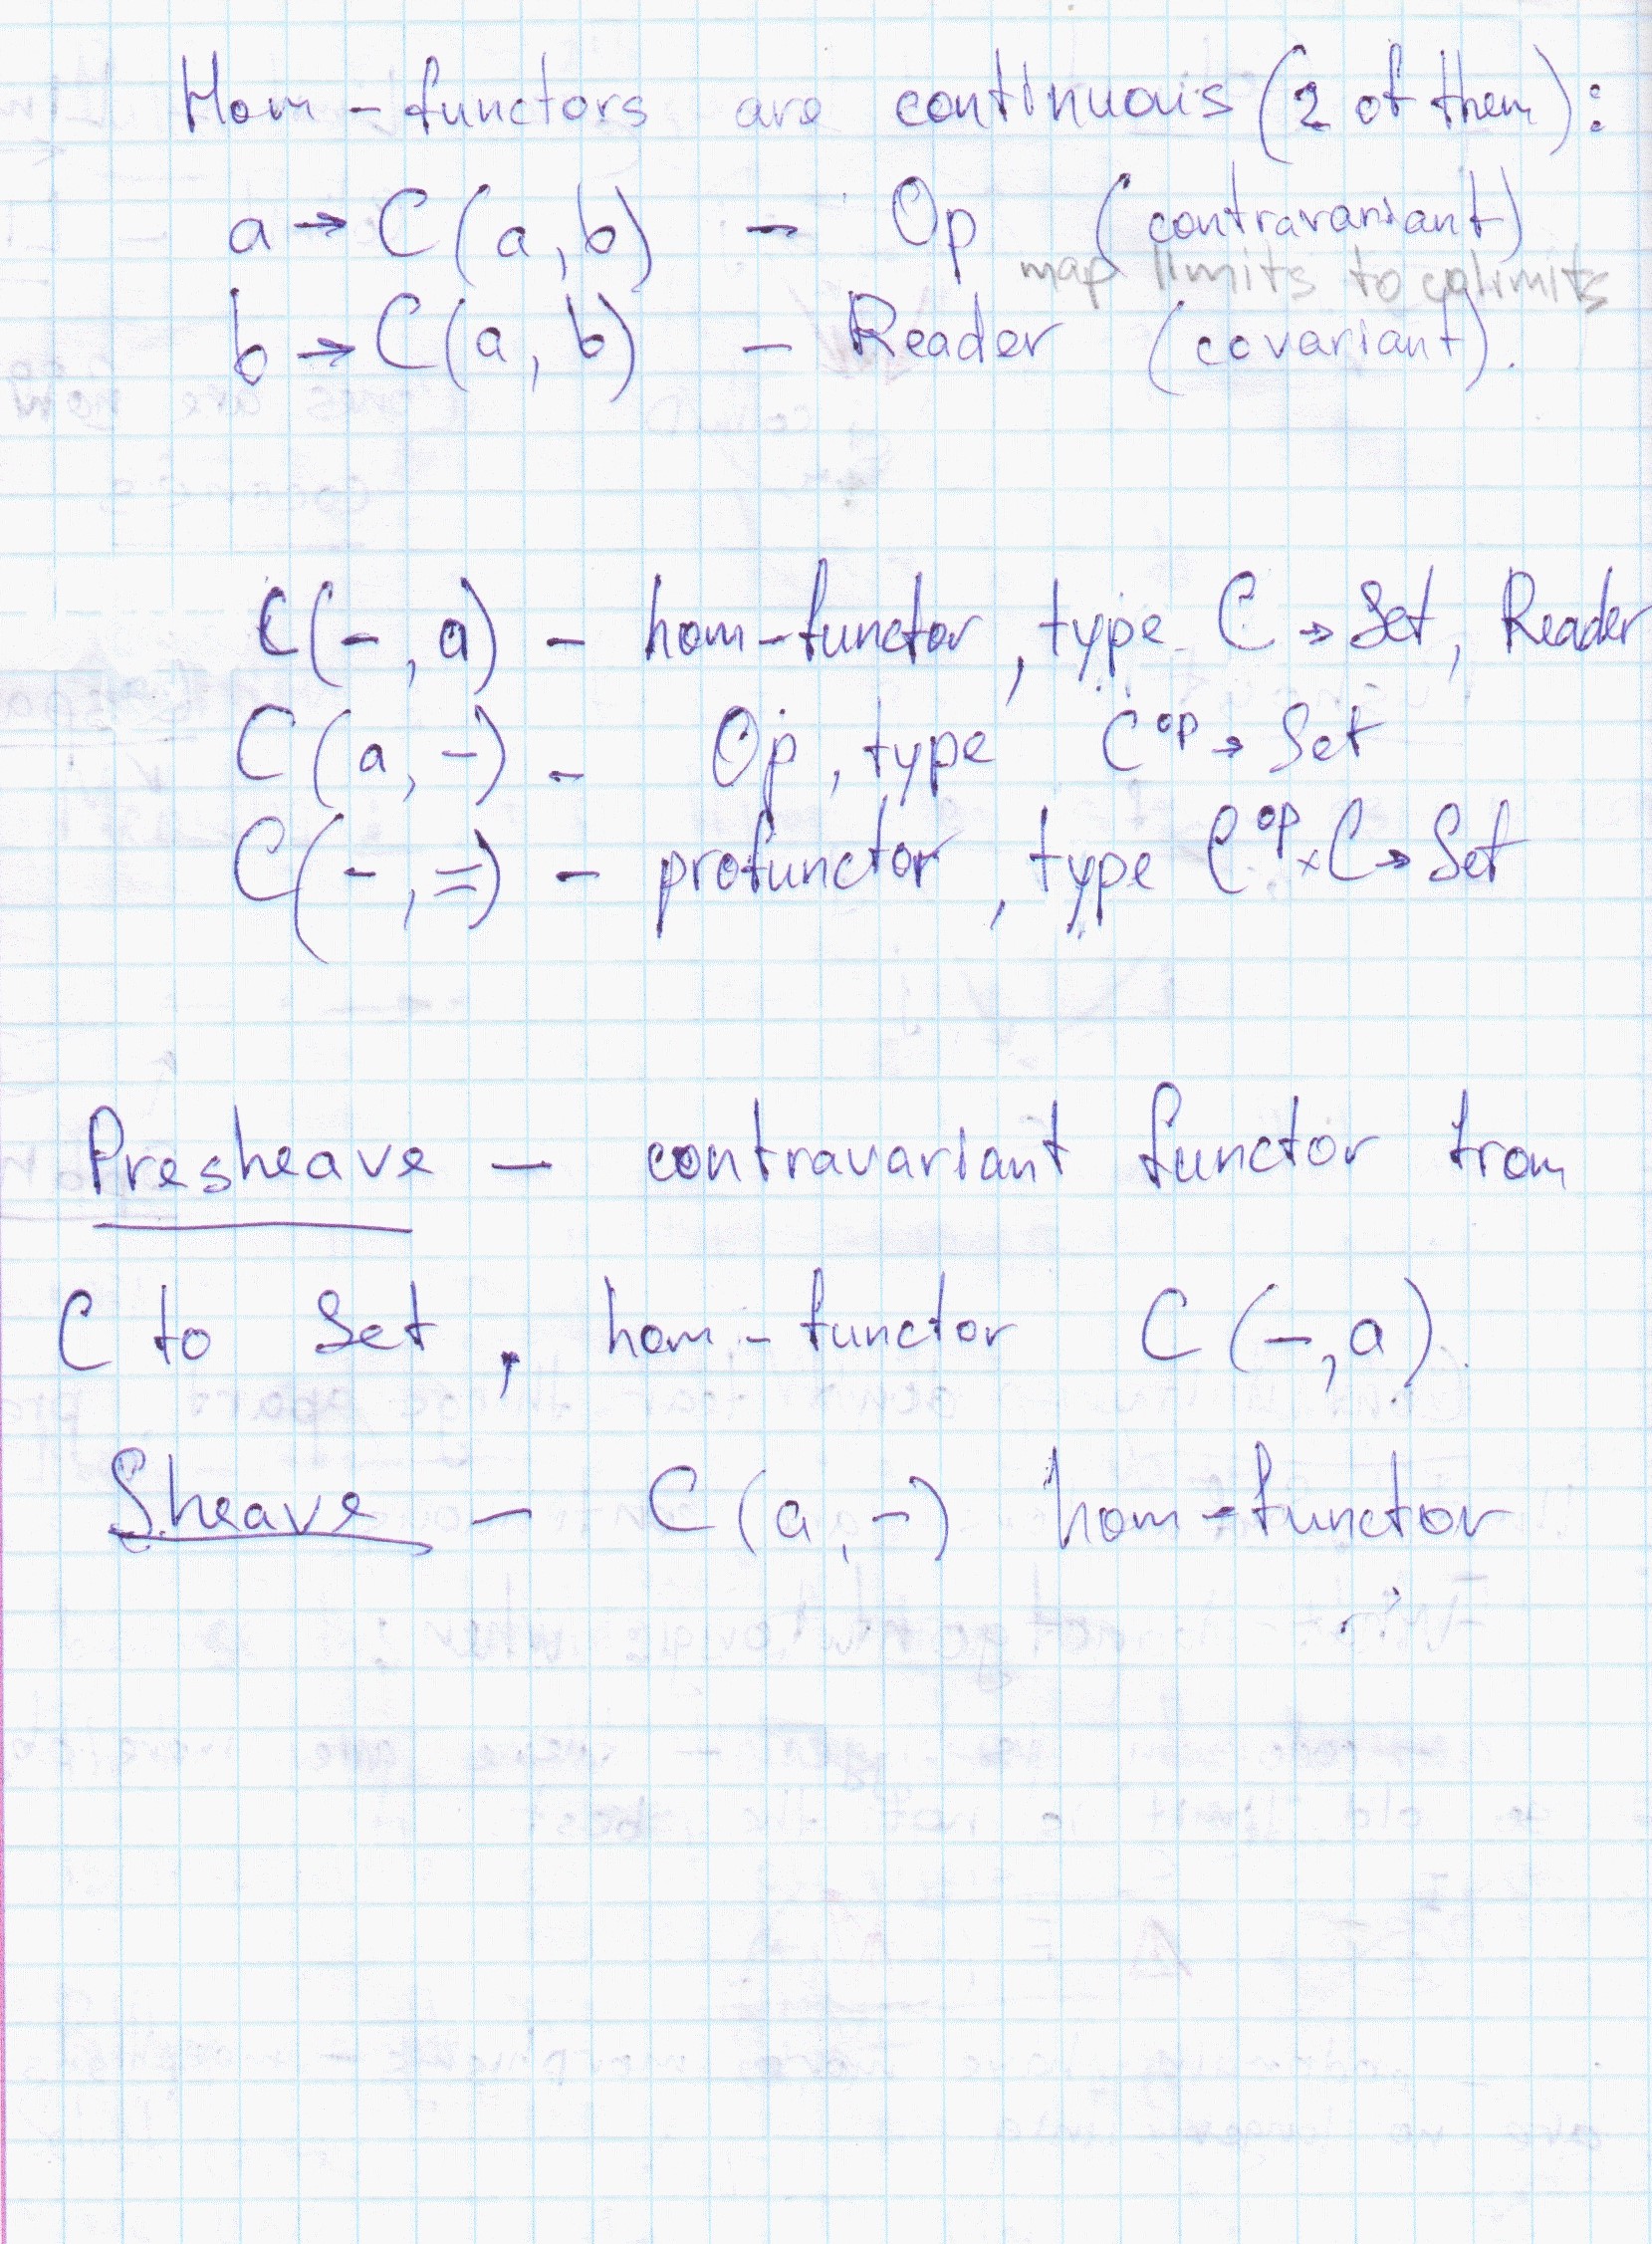 Hom-functors are continuous (2 of them):
a → C(a, b) - Op (contravariant)
map limits to colimits
b → C(a, b) - Reader (covariant).
C(-, a) - hom-functor, type C → Set, Reader
C(a, -) - Op, type C^op → Set
C(-, =) - profunctor, type C^op × C → Set
Presheave - contravariant functor from
C to Set, hom-functor C(-, a).
Sheave - C(a, -) hom-functor